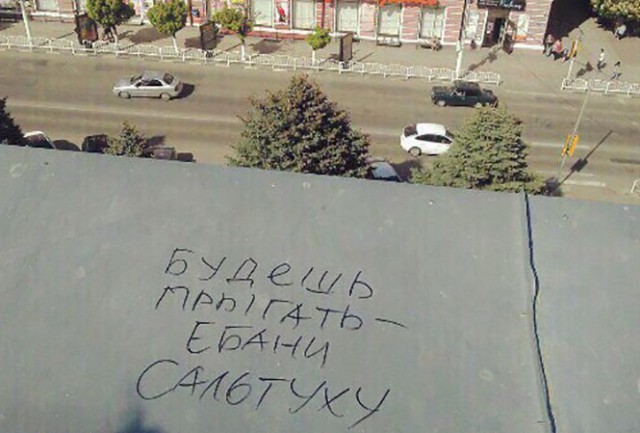 БУДЕШЬ
ПРЫГАТЬ-
ЕБАНИ
САЛЬТУХУ